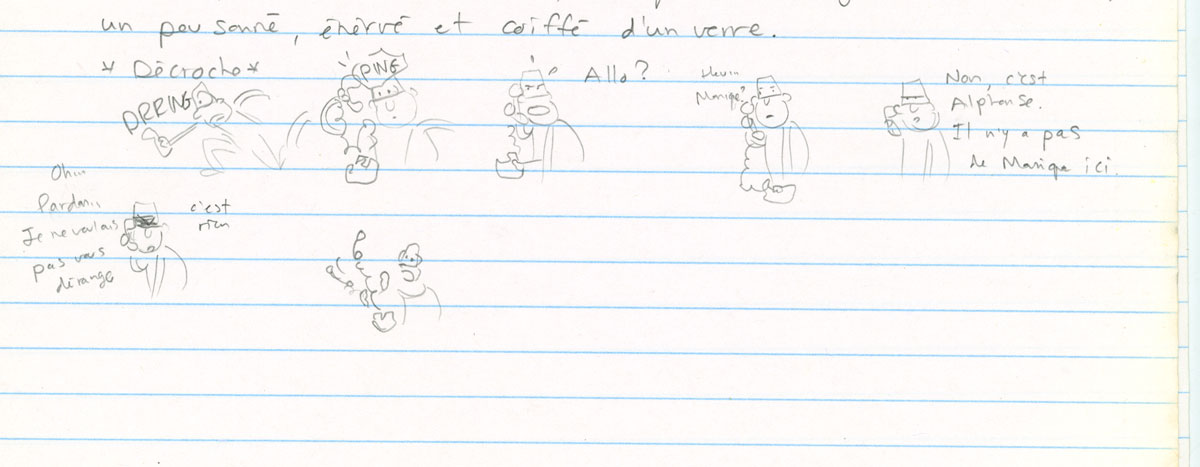 un peu sonné, énervé et coiffé d'un verre.
* Décroche *
DRRING
PING
Allo?
Heu...
Monique?
Non, c'est
Alphonse.
Il n'y a pas
de Monique ici.
Oh...
Pardon..
Je ne voulais
pas vous
déranger
c'est
rien